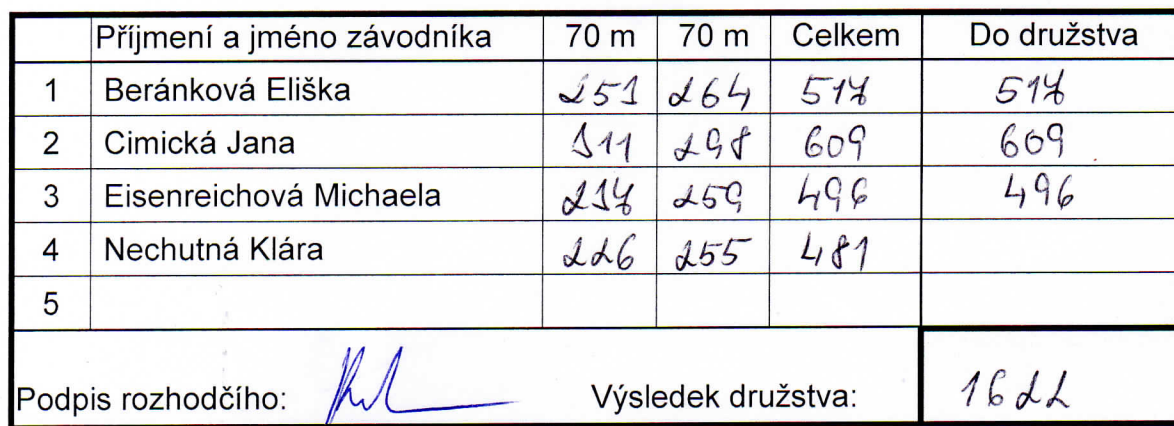 Příjmení a jméno závodníka 70 m 70 m Celkem Do družstva
1 Beránková Eliška 253 264 517 517
2 Cimická Jana 311 298 609 609
3 Eisenreichová Michaela 237 259 496 496
4 Nechutná Klára 226 255 481
5
Podpis rozhodčího: Výsledek družstva: 1622